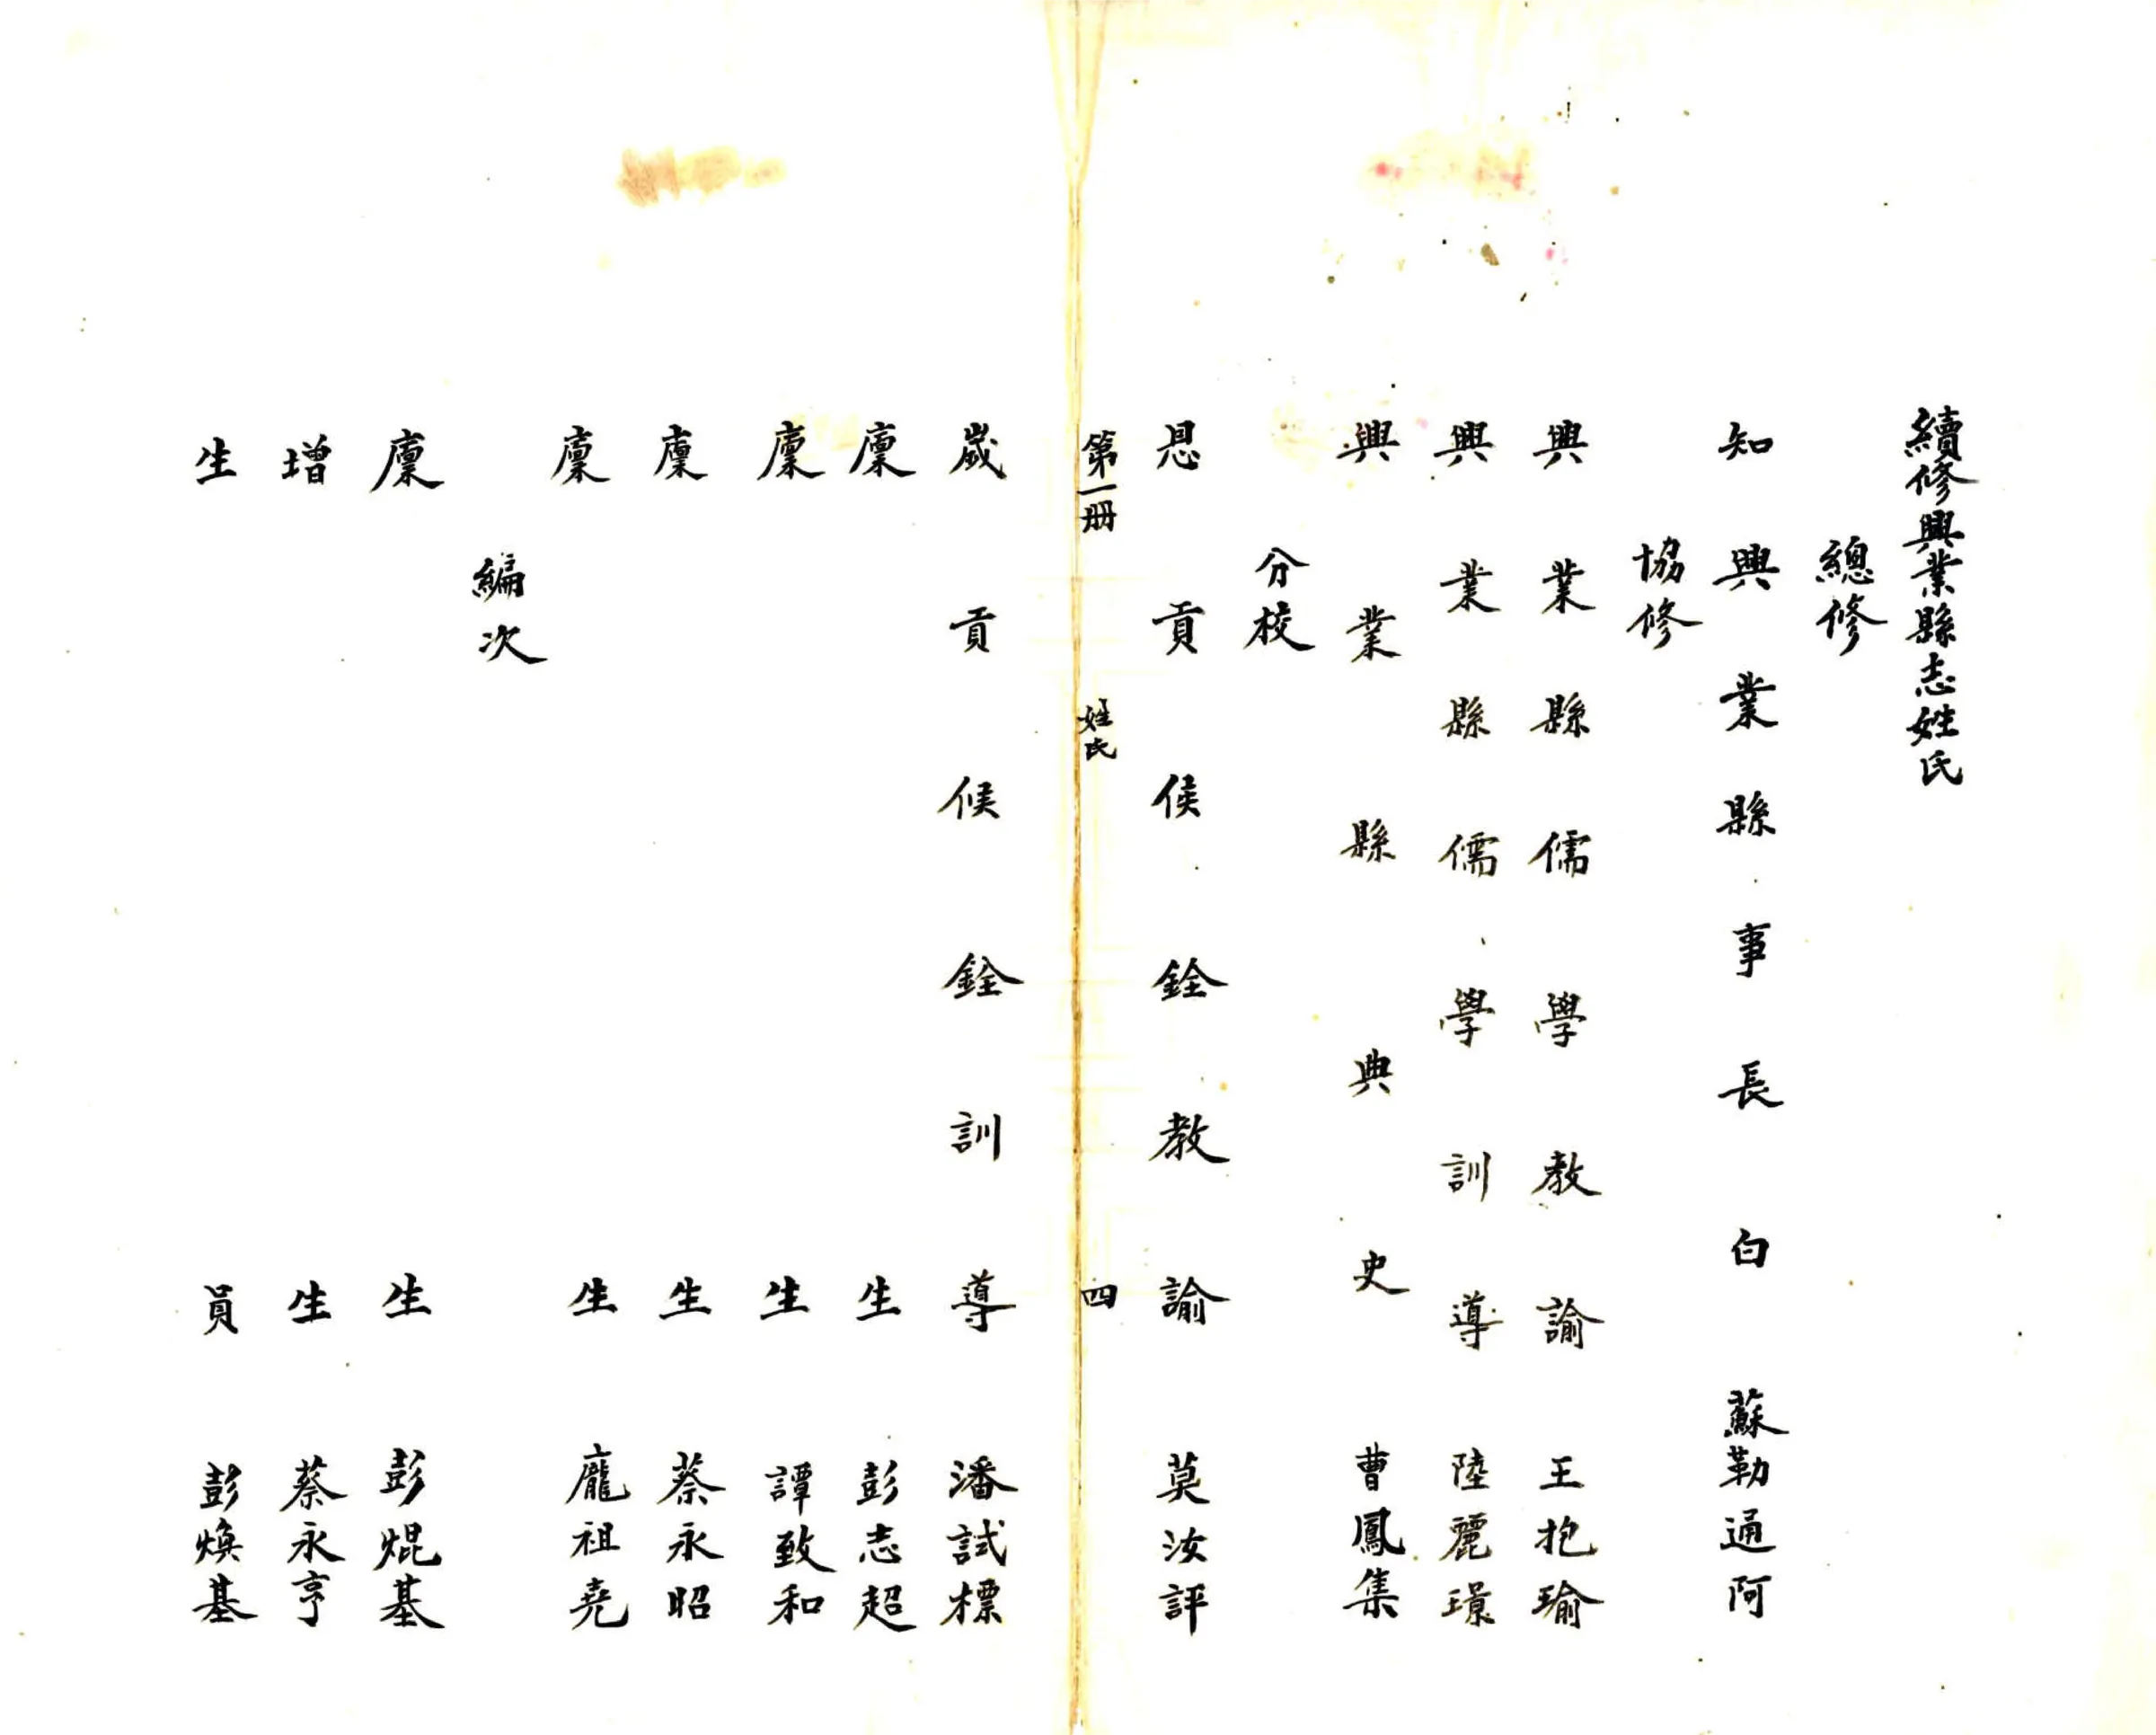 續修興業縣志姓氏
總修
知興業縣事長白蘇勒通阿
協修
興業縣儒學教諭王抱瑜
興業縣儒學訓導陸麗璟
興業縣典史曹鳳集
分校
恩貢侯銓教諭莫汝評
第一册 姓氏 四
歲貢候銓訓導潘試標
廩生彭志超
廩生譚致和
廩生蔡永昭
廩生龐祖堯
編次
廩生彭焜基
增生蔡永亨
生員彭煥基